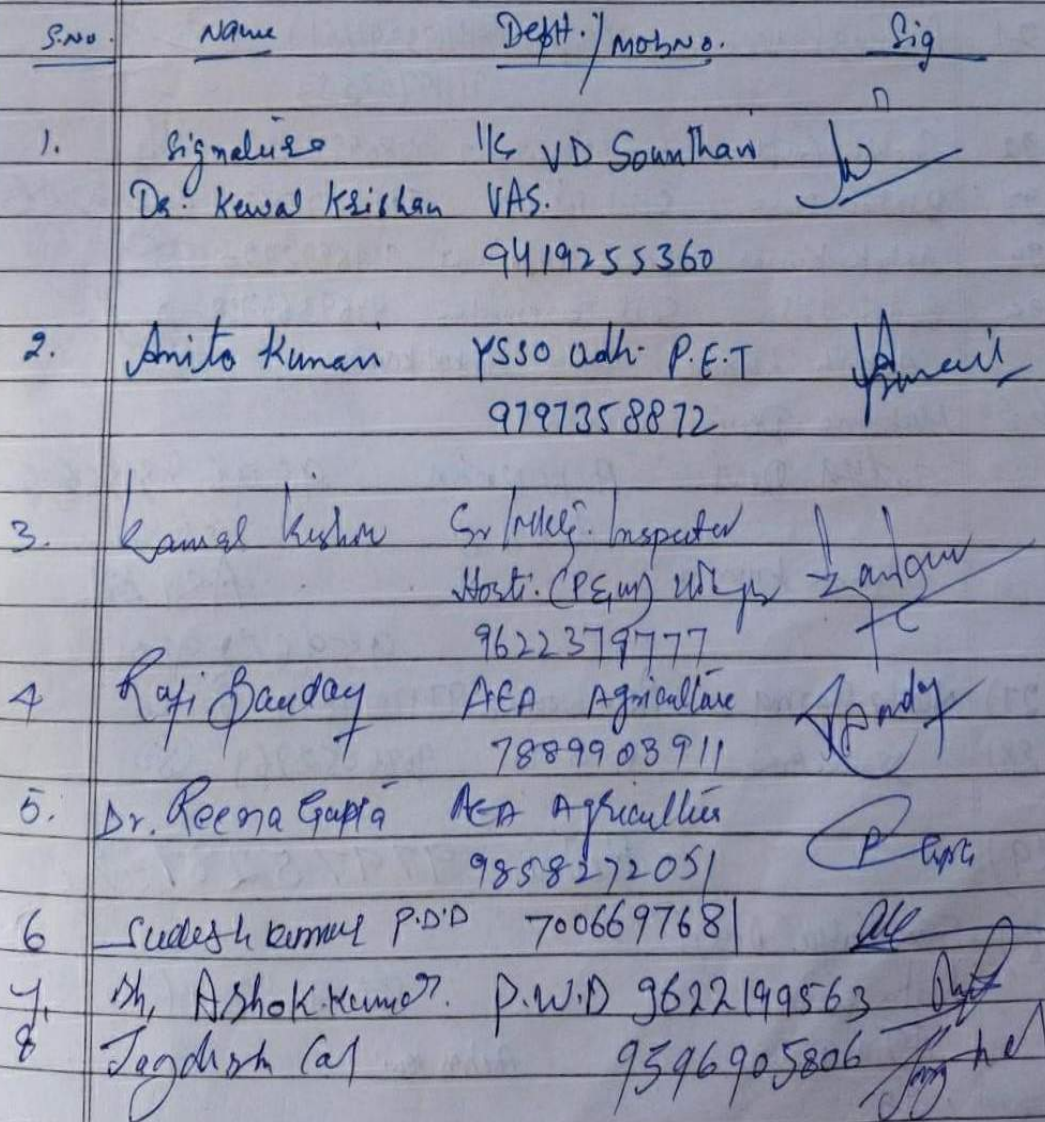 S.No. Name Deptt./Mob No. Sig
1. Signature I/c VD Sounthan
Dr. Kewal Krishan VAS.
9419255360
2. Anita Kumari YSSO adh. P.E.T
9797358872
3. Kamal Kishor Sr/Mktg. Inspector
Horti. (P&M)
9622379777
4 Rafi Banday AEA Agriculture
7889903911
5. Dr. Reena Gupta AEA Agriculture
9858272051
6 Sudesh kumar P.D.D 7006697681
7. Sh, Ashok.Kumar. P.W.D 9622199563
8 Jagdish Lal 9596905806